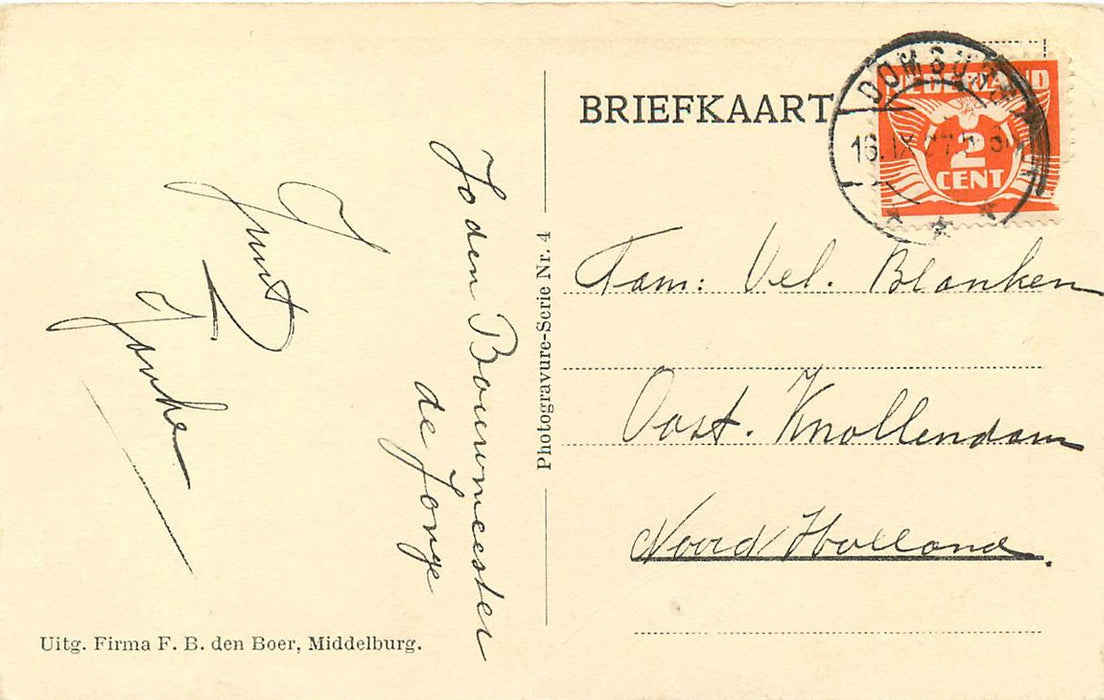 Jo den Bouwmeester
de Jonge
Photogravure-Serie Nr. 4
Uitg. Firma F. B. den Boer, Middelburg.
BRIEFKAART
DOMBURG
16.IX
NEDERLAND
2
CENT
Fam: Vel. Blanken
Oost. Knollendam
Noord Holland.